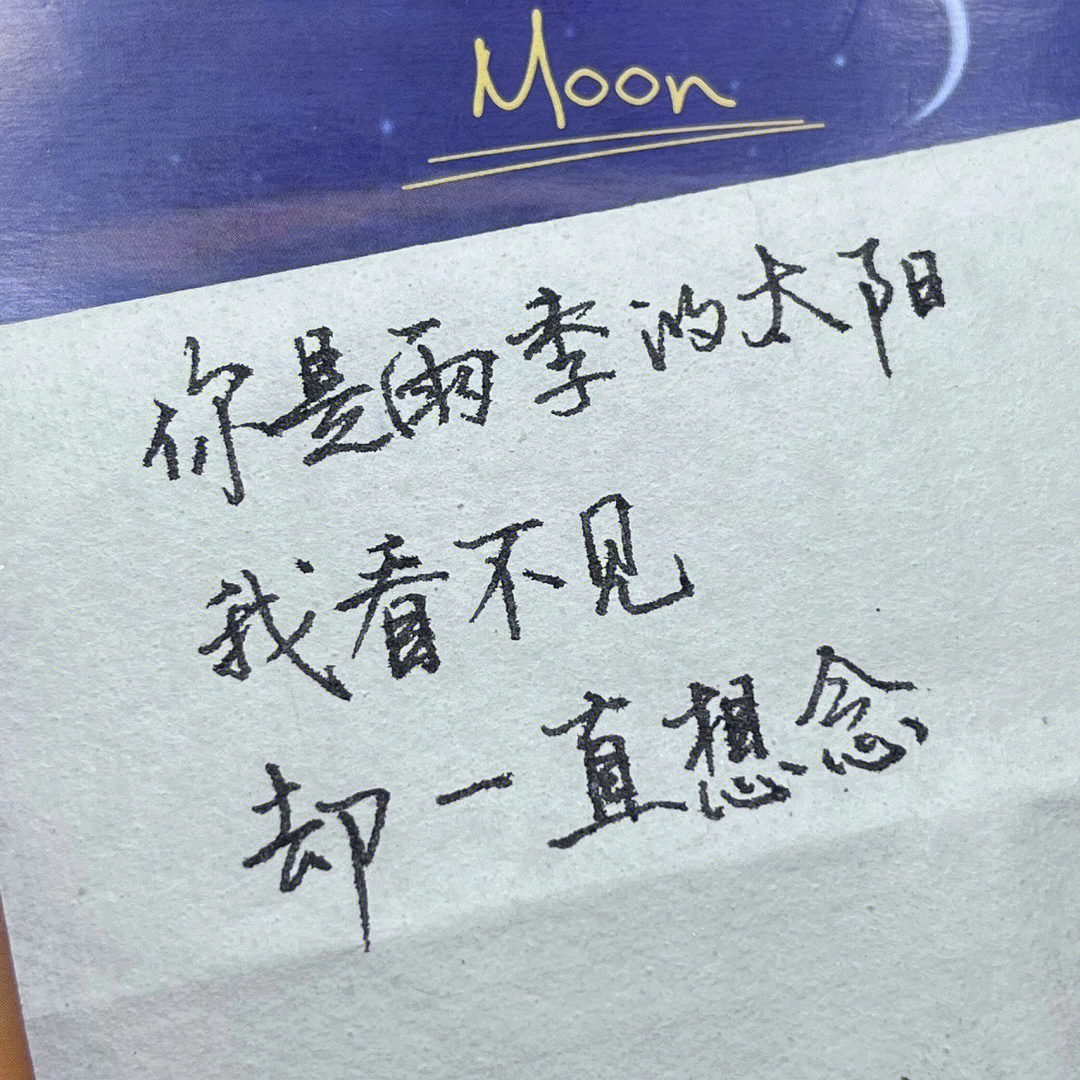 Moon
你是雨季的太阳
我看不见
却一直想念